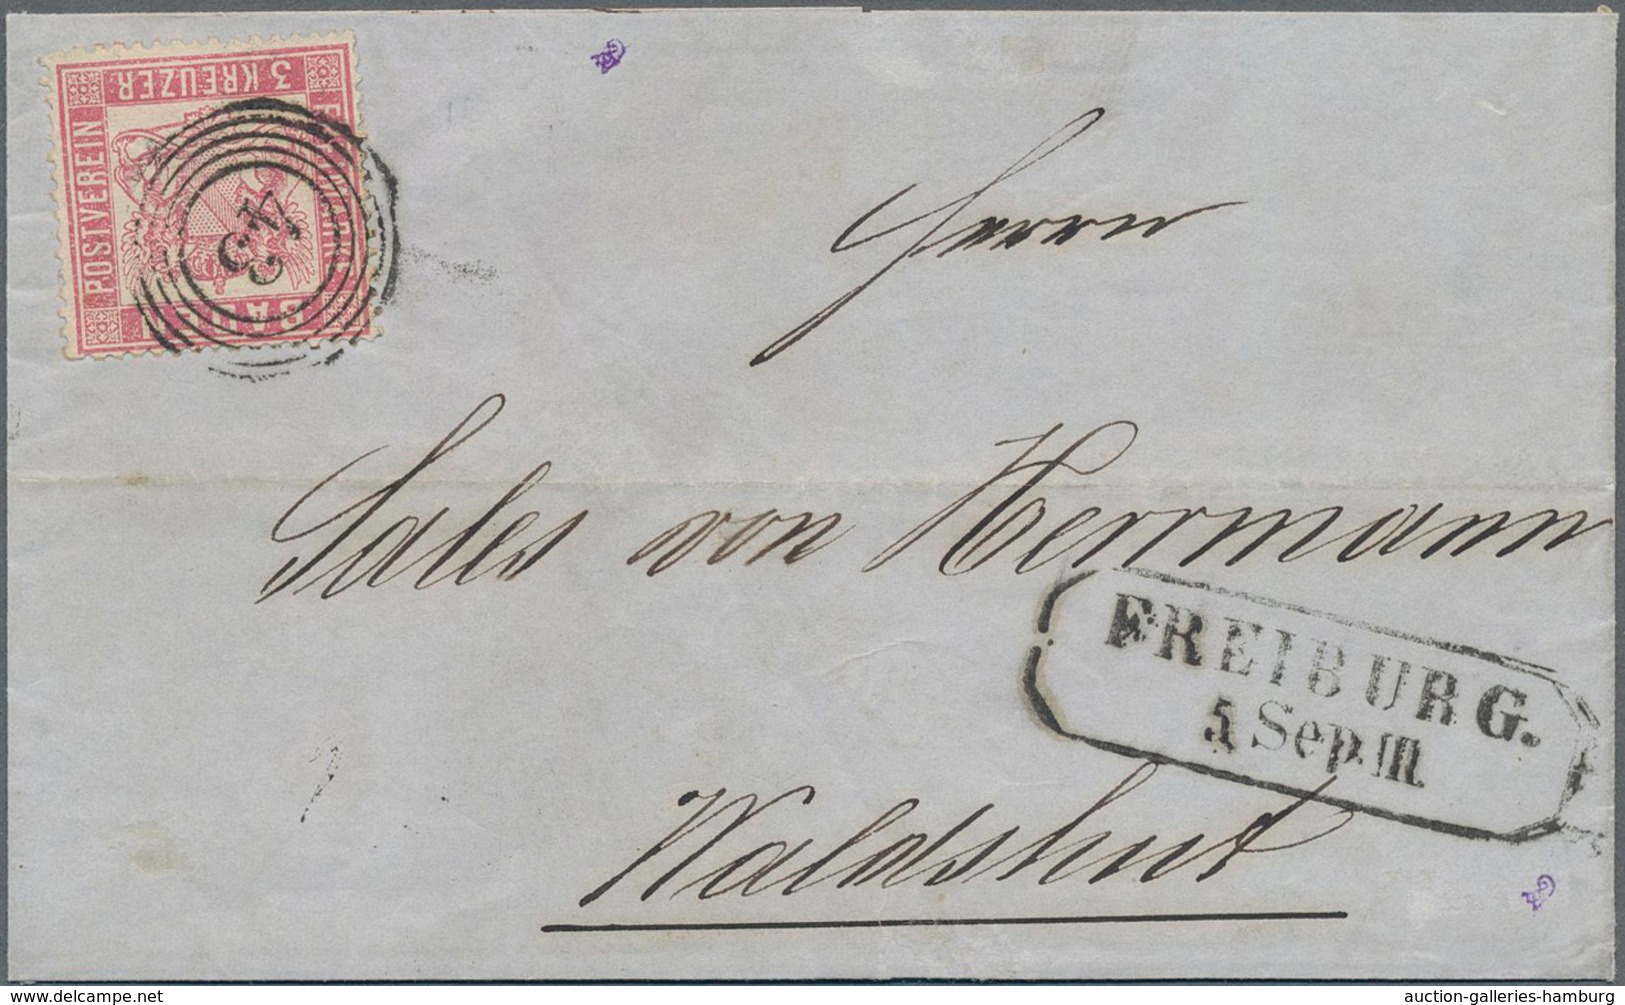 3 KREUZER.
POSTVEREIN
FREIMARKE
BADEN
43
Herrn
Sales von Herrmann
FREIBURG.
5 Sep. III.
Waldshut
auction-galleries-hamburg